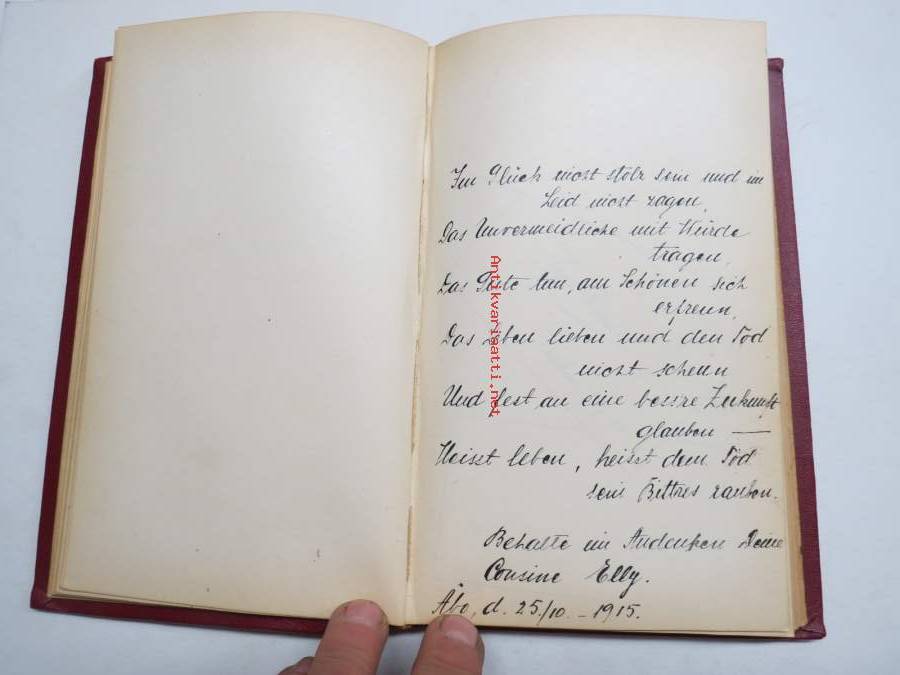 Im Glück nicht stolz sein und im
Leid nicht zagen,
Das Unvermeidliche mit Würde
tragen,
Das Gute tun, am Schönen sich
erfreun,
Das Leben lieben und den Tod
nicht scheun
Und fest an eine bessre Zukunft
glauben —
Heisst leben, heisst dem Tod
sein Bittres rauben.
Behalte im Andenken Deine
Cousine Elly.
Åbo, d. 25/10. - 1915.
Antikvariaatti.net